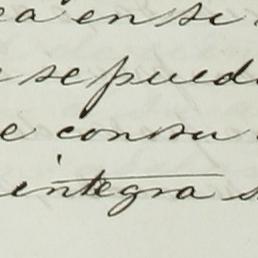 ea en si
se puede
e con su
integra